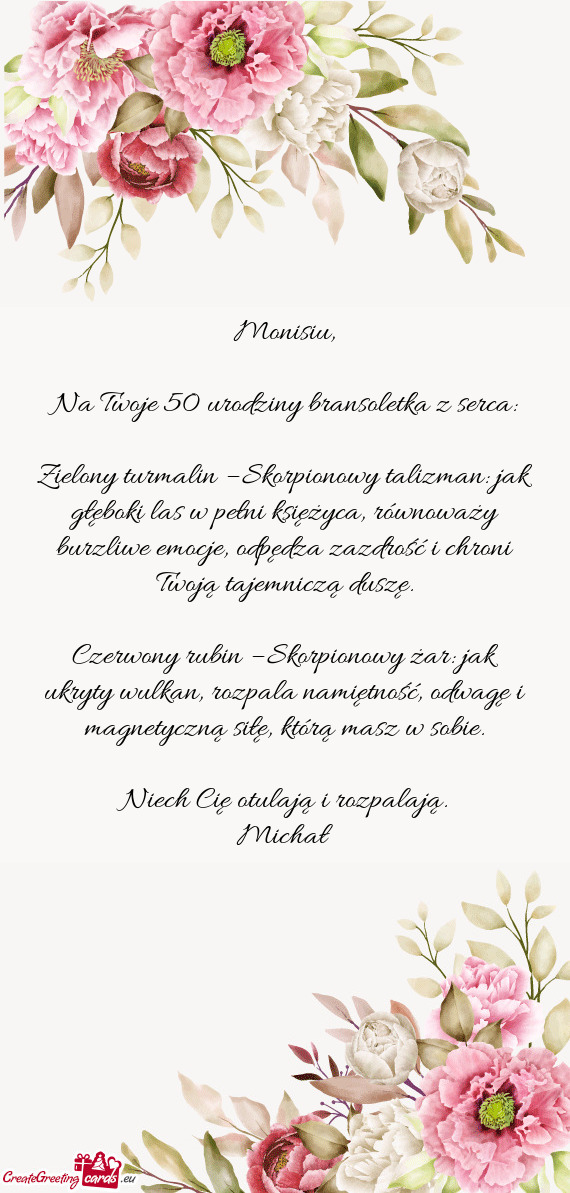 Monisiu,
Na Twoje 50 urodziny bransoletka z serca:
Zielony turmalin – Skorpionowy talizman: jak
głęboki las w pełni księżyca, równoważy
burzliwe emocje, odpędza zazdrość i chroni
Twoją tajemniczą duszę.
Czerwony rubin – Skorpionowy żar: jak
ukryty wulkan, rozpala namiętność, odwagę i
magnetyczną siłę, którą masz w sobie.
Niech Cię otulają i rozpalają.
Michał
CreateGreeting cards .eu